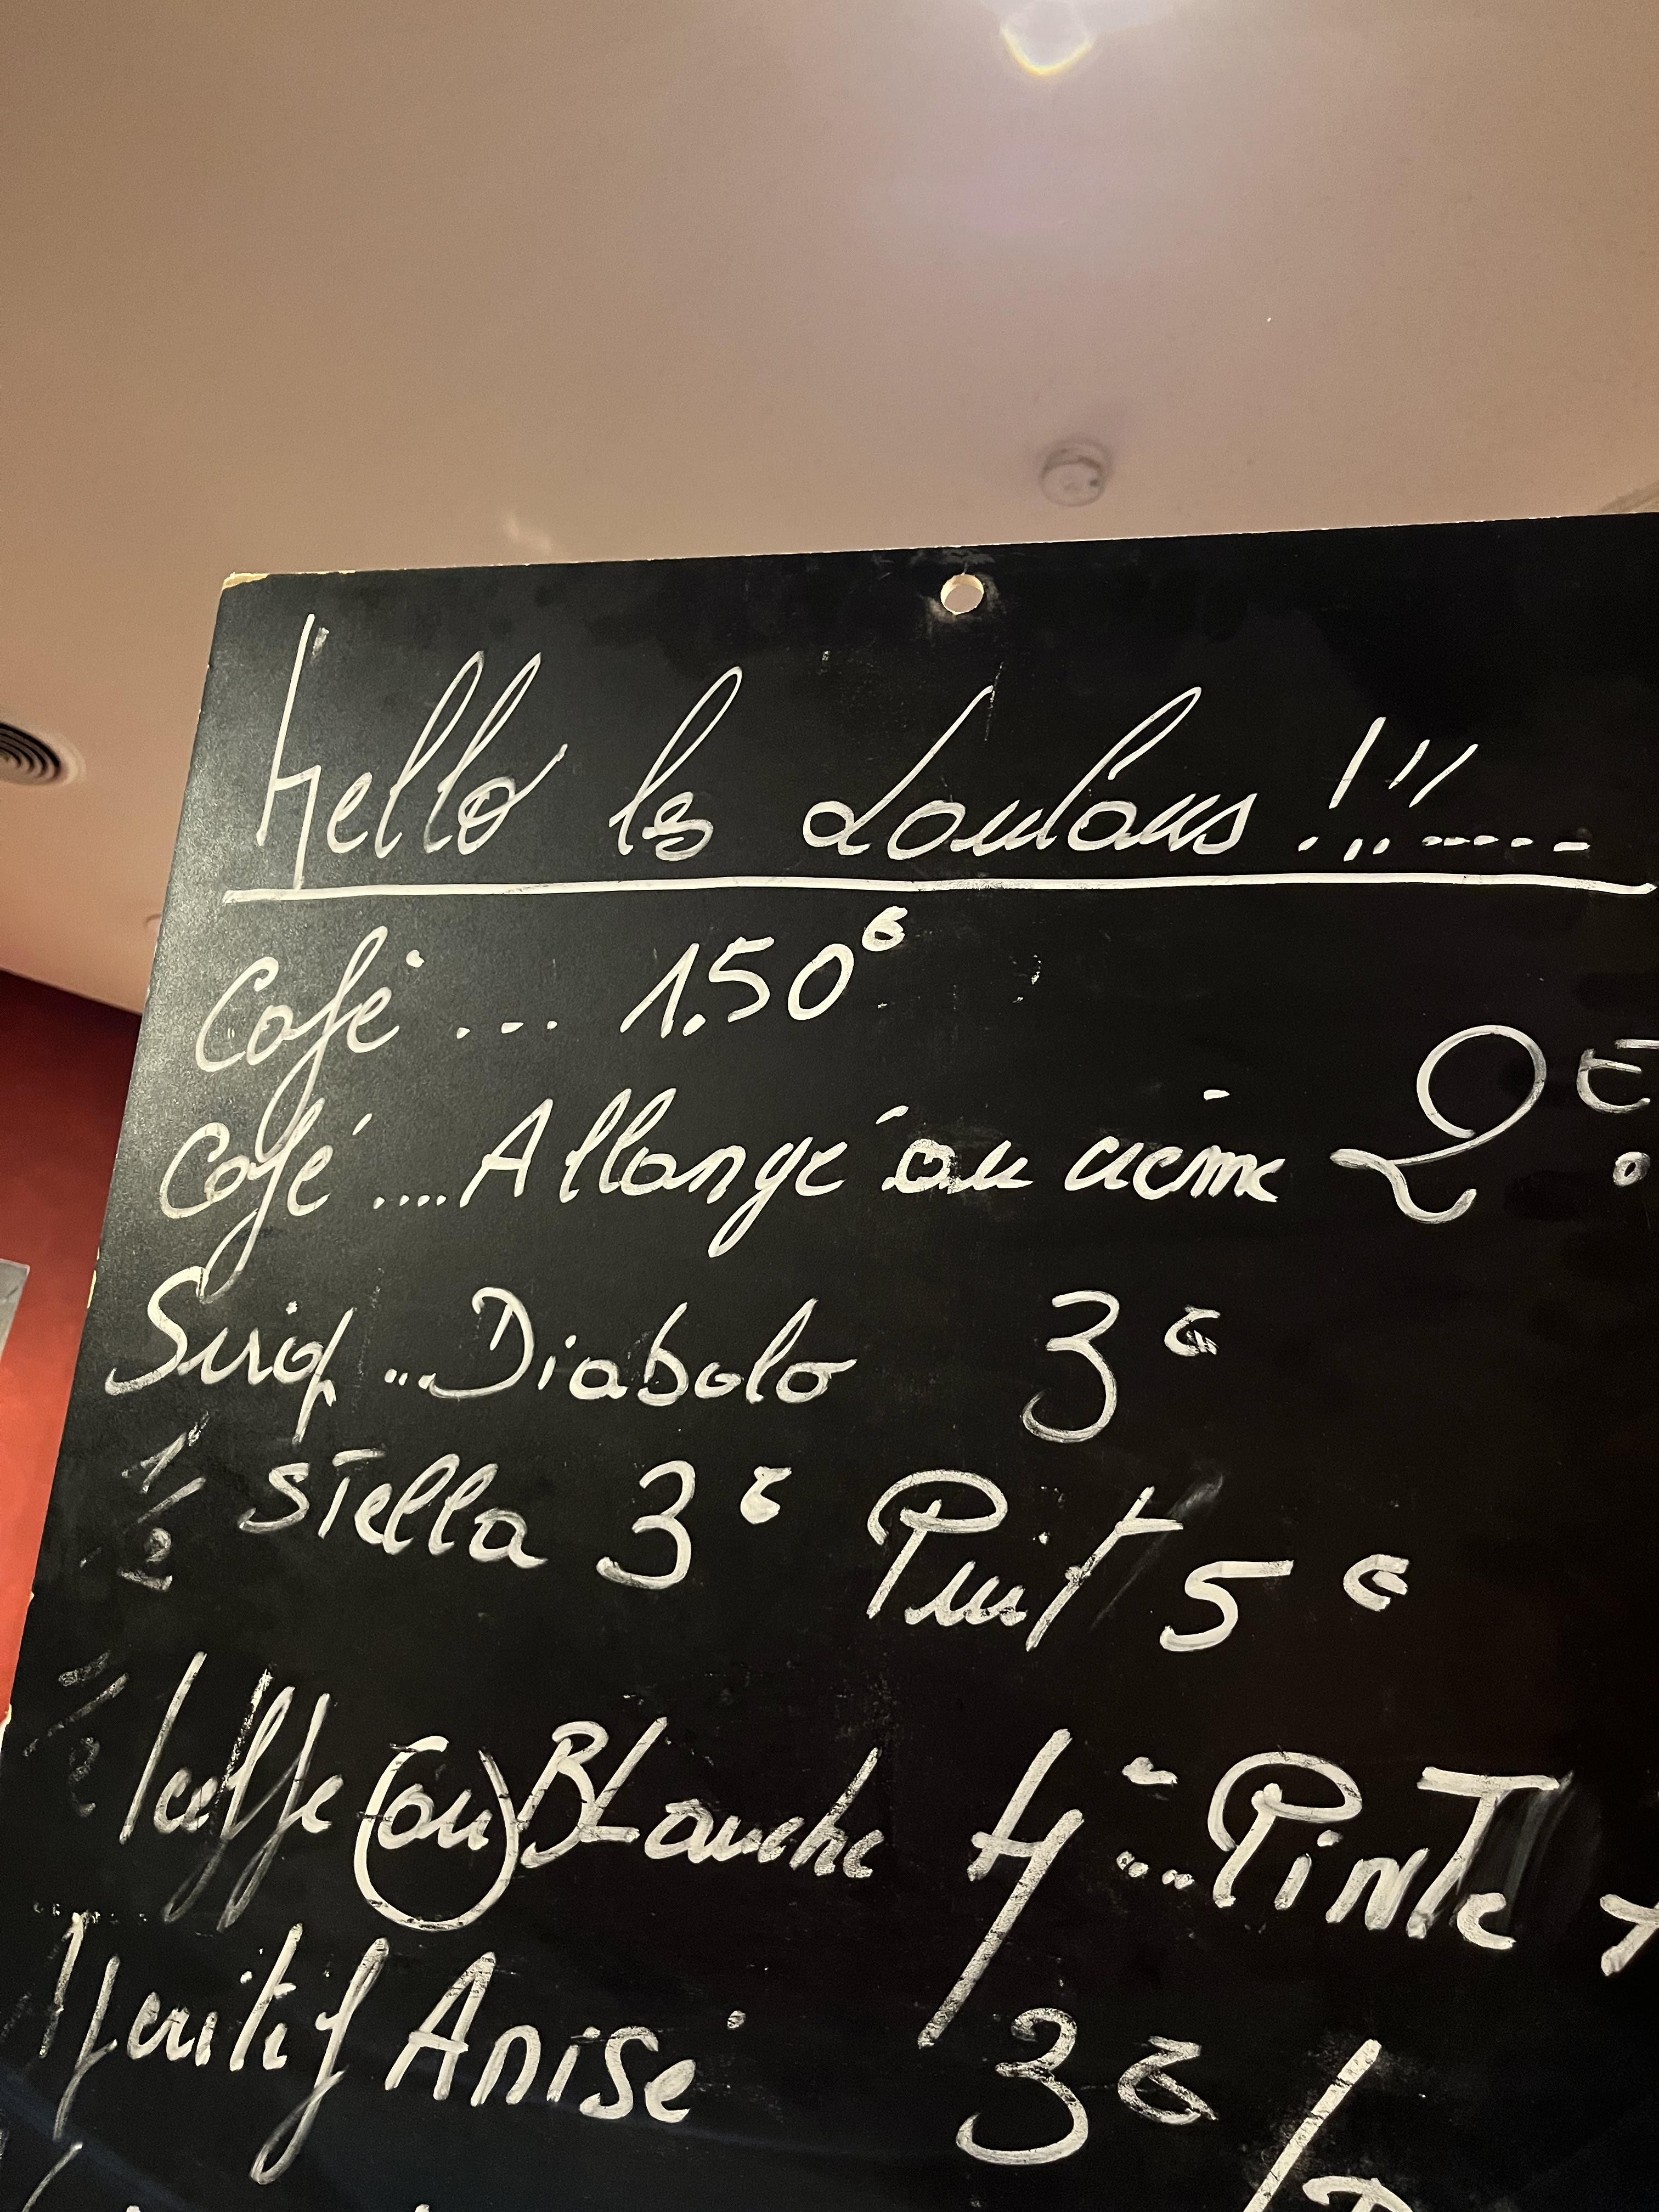 Hello les Loulous !!!......
Café ... 1.50€
Café .... Allongé ou crème 2€
Sirop ... Diabolo 3€
1/2 Stella 3€ Pint 5€
1/2 Leffe (ou) BLanche 4 ... PinTe
Aperitif Anisé 3€ /